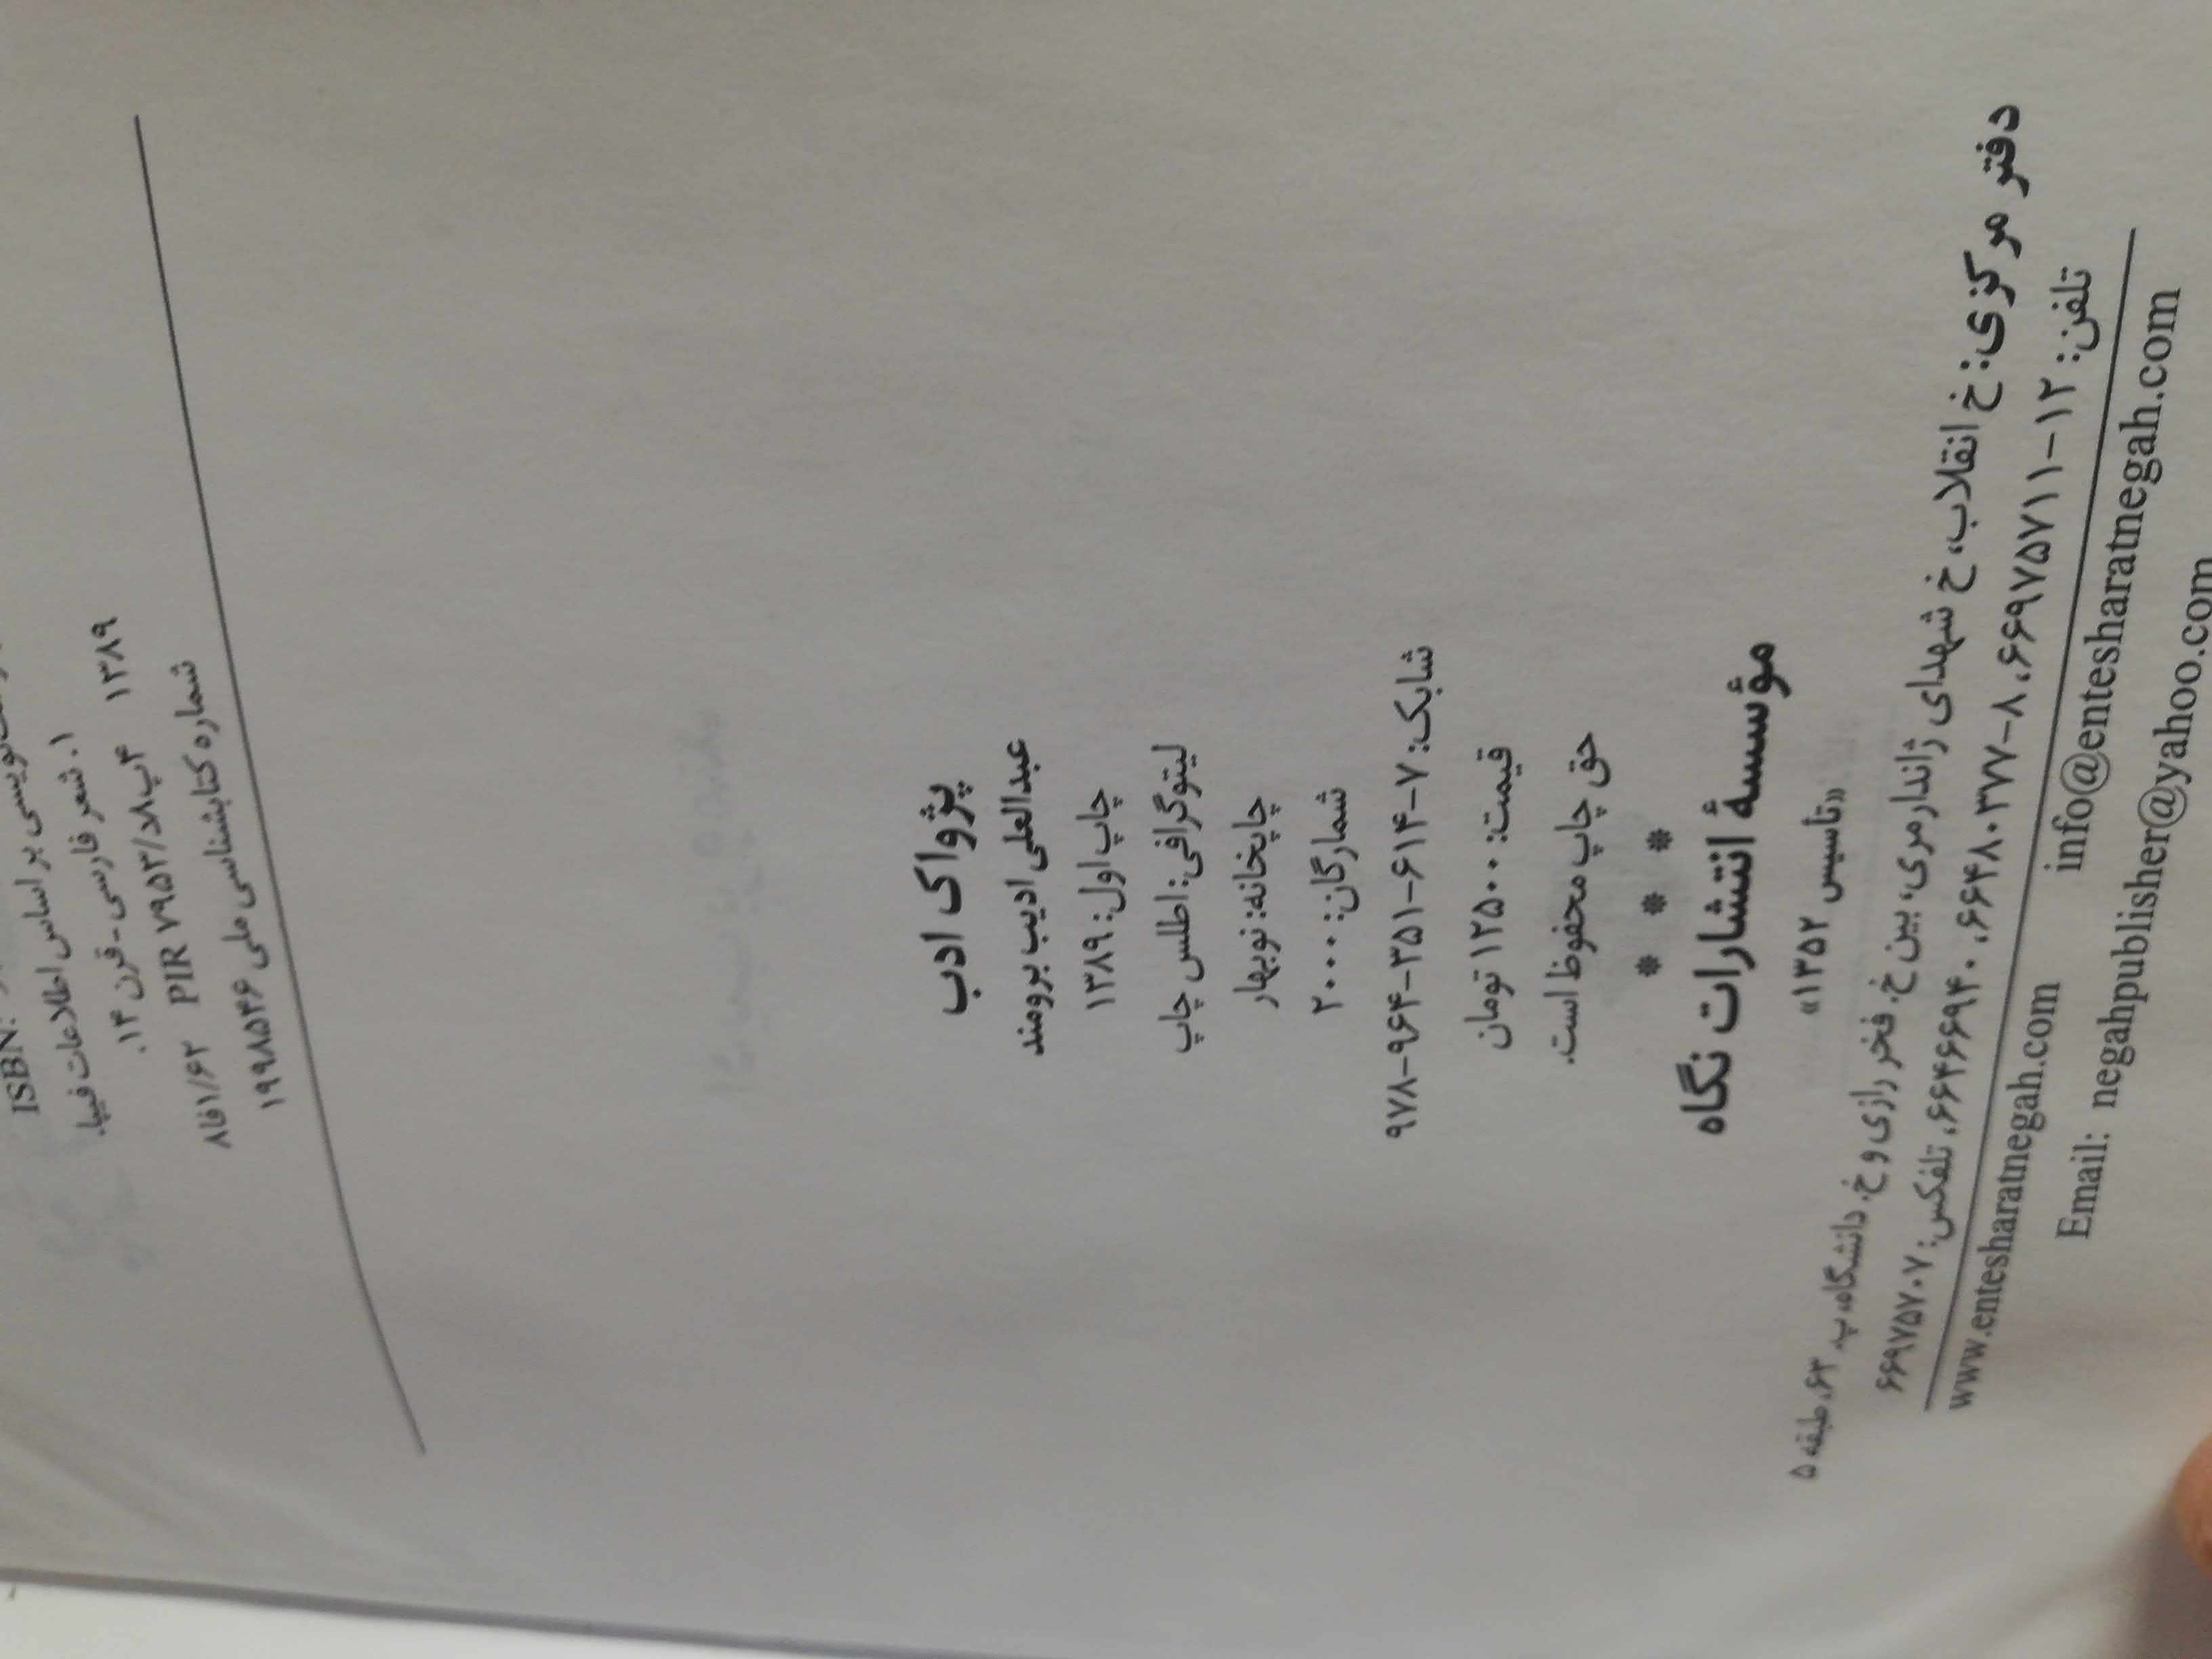 ISBN:
نویسی بر اساس اطلاعات فیپا.
۱. شعر فارسی - قرن ۱۴.
۱۳۸۹ ۴پ۸د/۷۹۵۳ PIR ۸فا۱/۶۲
شماره کتابشناسی ملی ۱۹۹۸۵۴۶
پژواک ادب
عبدالعلی ادیب برومند
چاپ اول: ۱۳۸۹
لیتوگرافی: اطلس چاپ
چاپخانه: نوبهار
شمارگان: ۲۰۰۰
شابک: ۷-۶۱۴-۳۵۱-۹۶۴-۹۷۸
قیمت: ۱۲۵۰۰ تومان
حق چاپ محفوظ است.
* * *
مؤسسهٔ انتشارات نگاه
«تأسیس ۱۳۵۲»
دفتر مرکزی: خ انقلاب، خ شهدای ژاندارمری، بین خ. فخر رازی و خ. دانشگاه، پ. ۶۳، طبقه ۵
تلفن: ۱۲-۶۶۹۷۵۷۱۱، ۸-۶۶۴۸۰۳۷۷، ۶۶۴۶۶۹۴۰، تلفکس: ۶۶۹۷۵۷۰۷
www.entesharatnegah.com info@entesharatnegah.com
Email: negahpublisher@yahoo.com